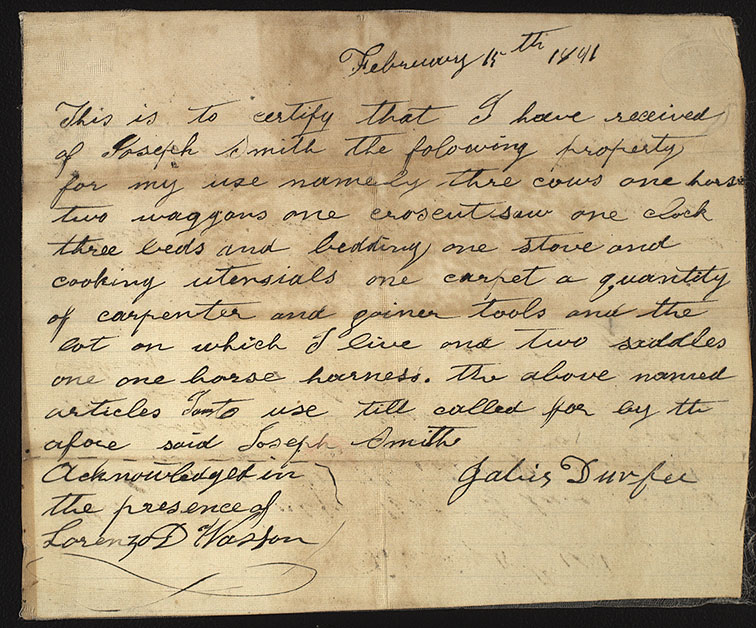 February 15th 1841
This is to certify that I have received
of Joseph Smith the folowing property
for my use namely thre cows one horse
two waggons one croscut saw one clock
three beds and bedding one stove and
cooking utensials one carpet a quantity
of carpenter and goiner tools and the
lot on which I live and two saddles
one one horse harness. the above named
articles I am to use till called for by the
afore said Joseph Smith
Acknowledged in
the presence of
Lorenzo D Wasson
Jabis Durfee